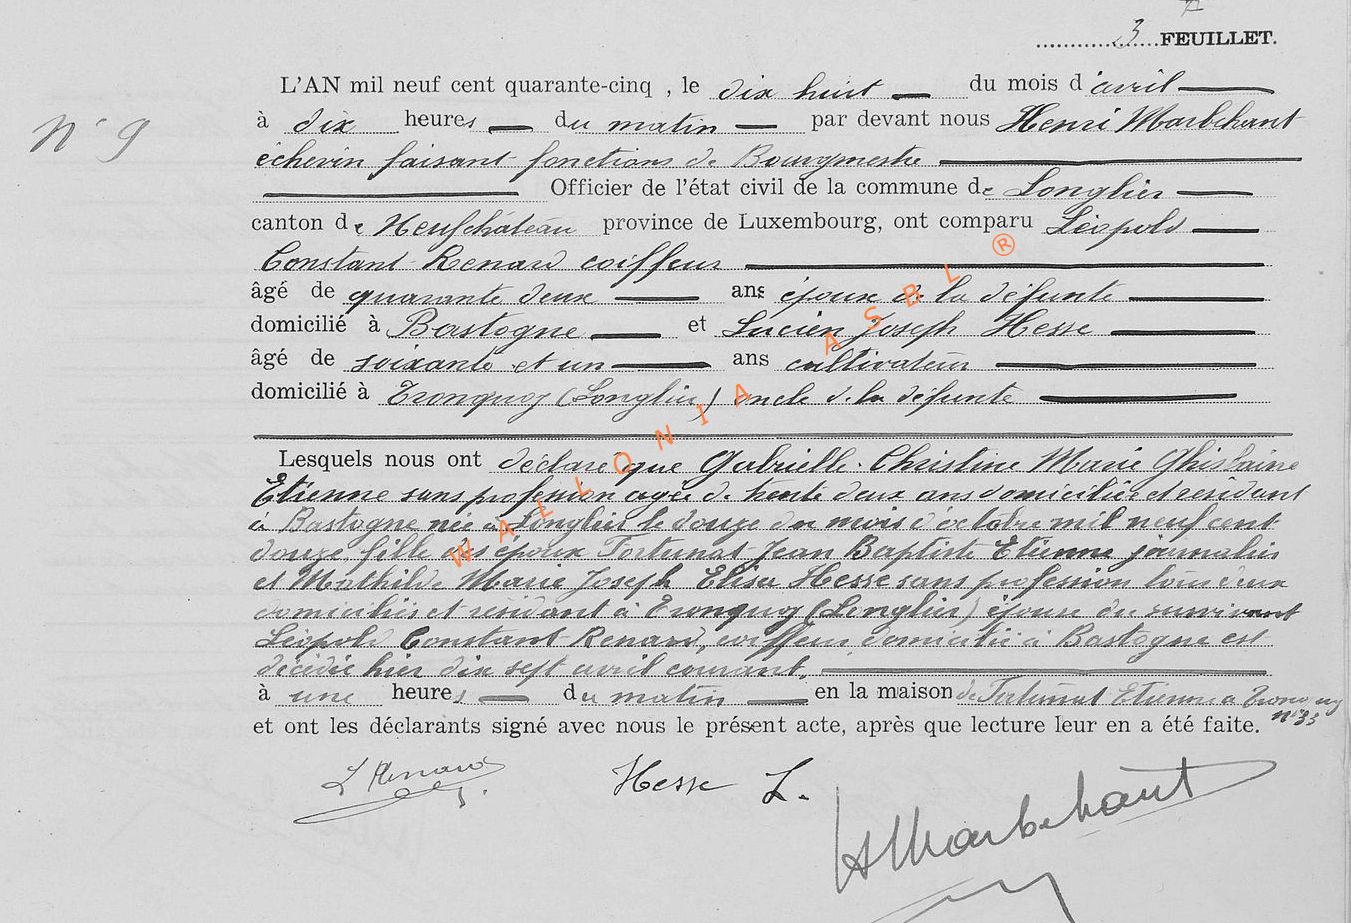 3 FEUILLET.
L'AN mil neuf cent quarante-cinq , le dix huit du mois d'avril
N° 9
à dix heures du matin par devant nous Henri Marbehant
échevin faisant fonctions de Bourgmestre
Officier de l'état civil de la commune de Longlier
canton de Neufchâteau province de Luxembourg, ont comparu Léopold
Constant Renard coiffeur
âgé de quarante deux ans époux de la défunte
domicilié à Bastogne et Lucien Joseph Hesse
âgé de soixante et un ans cultivateur
domicilié à Tronquoy (Longlier) oncle de la défunte
Lesquels nous ont déclaré que Gabrielle Christine Marie Ghislaine
Etienne sans profession agée de trente deux ans domiciliée et résidant
à Bastogne née à Longlier le douze du mois d'octobre mil neuf cent
douze, fille des époux Fortunat Jean Baptiste Etienne journalier
et Mathilde Marie Joseph Elisa Hesse sans profession tous deux
domiciliés et résidant à Tronquoy (Longlier) épouse du survivant
Léopold Constant Renard, coiffeur, domicilié à Bastogne est
décédée hier dix sept avril courant.
à une heures du matin en la maison de Fortunat Etienne à Tronquoy
n°33
et ont les déclarants signé avec nous le présent acte, après que lecture leur en a été faite.
L Renard
Hesse L.
H Marbehant
WALLONIA ASBL ®